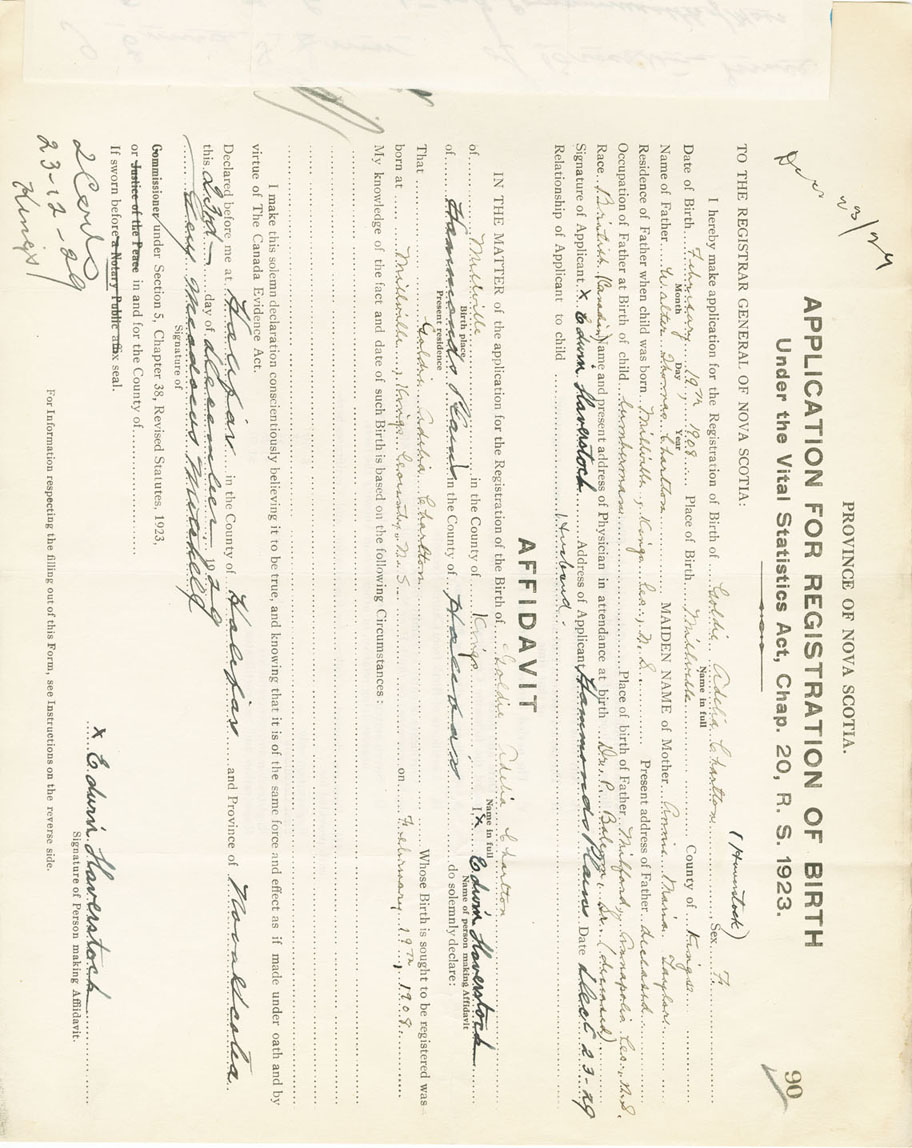 PROVINCE OF NOVA SCOTIA.
90
APPLICATION FOR REGISTRATION OF BIRTH
Under the Vital Statistics Act, Chap. 20, R. S. 1923.
(Haverstock)
TO THE REGISTRAR GENERAL OF NOVA SCOTIA:
I hereby make application for the Registration of Birth of Goldie Adelia Charlton Sex F.
Name in full
Date of Birth February 19th 1908 Place of Birth Millville County of Kings
Month Day Year
Name of Father Walter Thomas Charlton MAIDEN NAME of Mother Annie Maria Taylor
Residence of Father when child was born Millville, Kings Co., N. S. Present address of Father deceased
Occupation of Father at Birth of child Lumberman Place of birth of Father Milford, Annapolis Co., N.S.
Race British (Canadian) ame and present address of Physician in attendance at birth Dr. P. Sr. (deceased)
Signature of Applicant X Edwin Haverstock Address of Applicant Hammonds Plains Date Dec 23-29
Relationship of Applicant to child Husband.
AFFIDAVIT
IN THE MATTER of the application for the Registration of the Birth of Goldie Adelia Charlton
Name in full
of Millville in the County of Kings I X Edwin Haverstock
Birth place Name of person making Affidavit
of Hammonds Plains in the County of Halifax do solemnly declare:
Present residence
That Goldie Adelia Charlton Whose Birth is sought to be registered was
born at Millville, Kings County, N. S. on February 19th, 1908.
My knowledge of the fact and date of such Birth is based on the following Circumstances:
I make this solemn declaration conscientiously believing it to be true, and knowing that it is of the same force and effect as if made under oath and by
virtue of The Canada Evidence Act.
Declared before me at Halifax in the County of Halifax and Province of Nova Scotia
this 23rd day of December, 1929
Signature of
Commissioner under Section 5, Chapter 38, Revised Statutes, 1923,
or Justice of the Peace in and for the County of
If sworn before a Notary Public affix seal.
X Edwin Haverstock
Signature of Person making Affidavit.
23-12-29
Kings
For Information respecting the filling out of this Form, see Instructions on the reverse side.